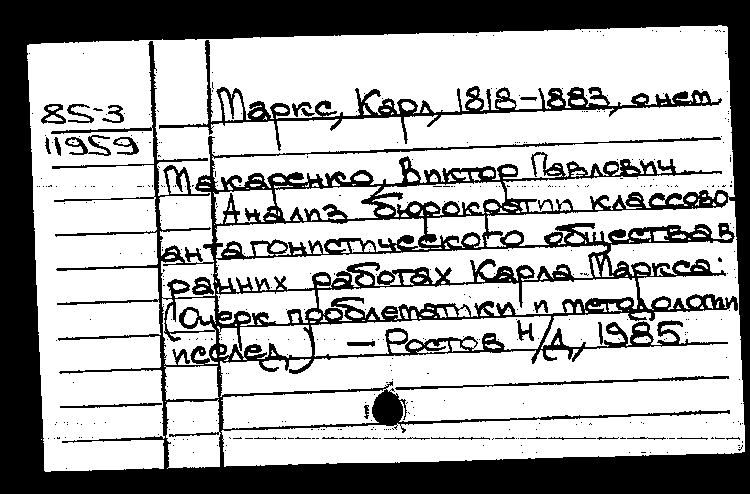 Маркс, Карл, 1818-1883, о нем.
85-3
11959
Макаренко, Виктор Павлович
Анализ бюрократии классово-
антагонистического общества в
ранних работах Карла Маркса:
(Очерк проблематики и методологии
исслед.). - Ростов н/Д, 1985.